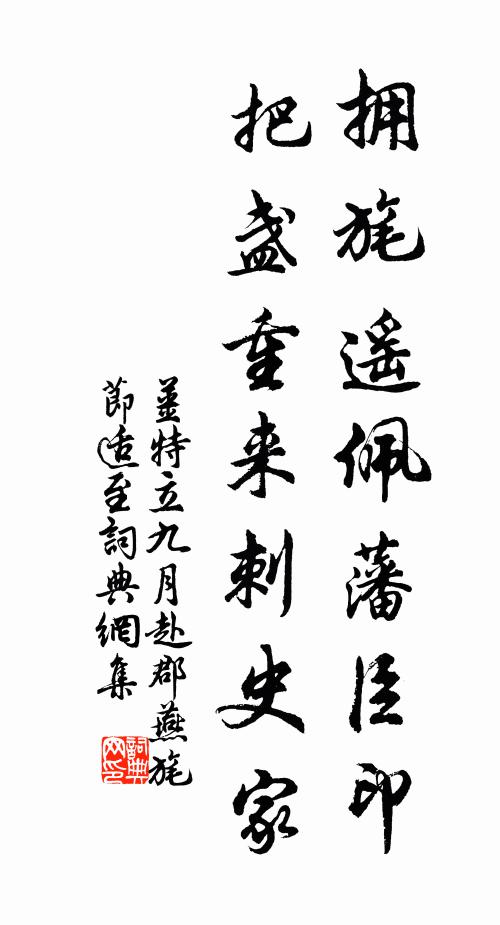 拥旄遥佩藩臣印
把盏重来刺史家
姜特立九月赴郡燕旄
節适至詞典網集
詞典网印